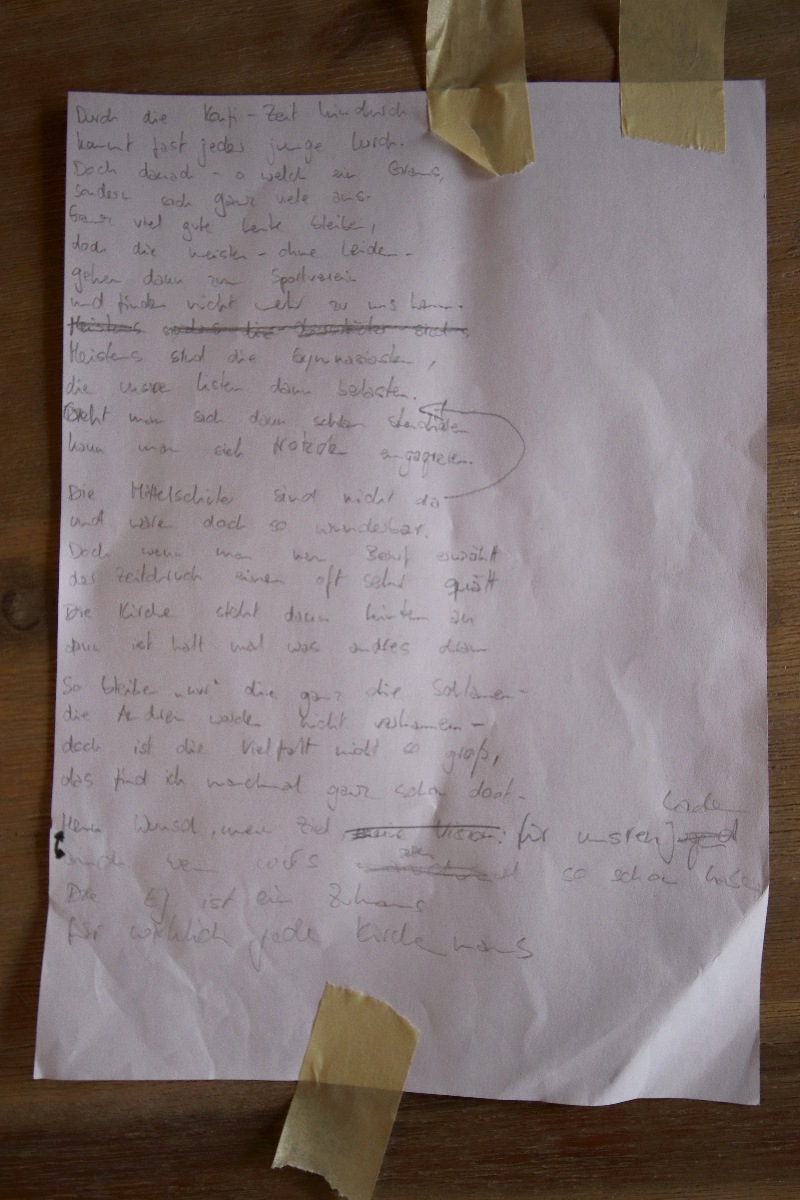 Durch die Konfi-Zeit hindurch
kommt fast jeder junge Lurch.
Doch danach - o welch ein Graus,
sondern sich ganz viele aus.
Ganz viel gute Leute bleiben,
doch die meisten - ohne Leiden -
gehen dann zum Sportverein
und finden nicht mehr zu uns heim.
Meistens sind die
Meistens sind die Gymnasiasten,
die unsre Listen dann belasten.
Geht man sich dann schlau studieren
kann man sich trotzdem engagieren.
Die Mittelschüler sind nicht da
und wären doch so wunderbar.
Doch wenn man den Beruf erwählt
der Zeitdruck einen oft sehr quält
Die Kirche steht dann hinten an
dann ist halt mal was andres dran
So bleiben "nur" die ganz die
die Andren wurden nicht vernommen -
doch ist die Vielfalt nicht so groß,
das find ich manchmal ganz schön doof.
Mein Wunsch, mein Ziel, meine Vision: für unsren Jugend
wenn so schon
Die EJ ist ein Zuhaus
für wirklich jede Kirchenmaus